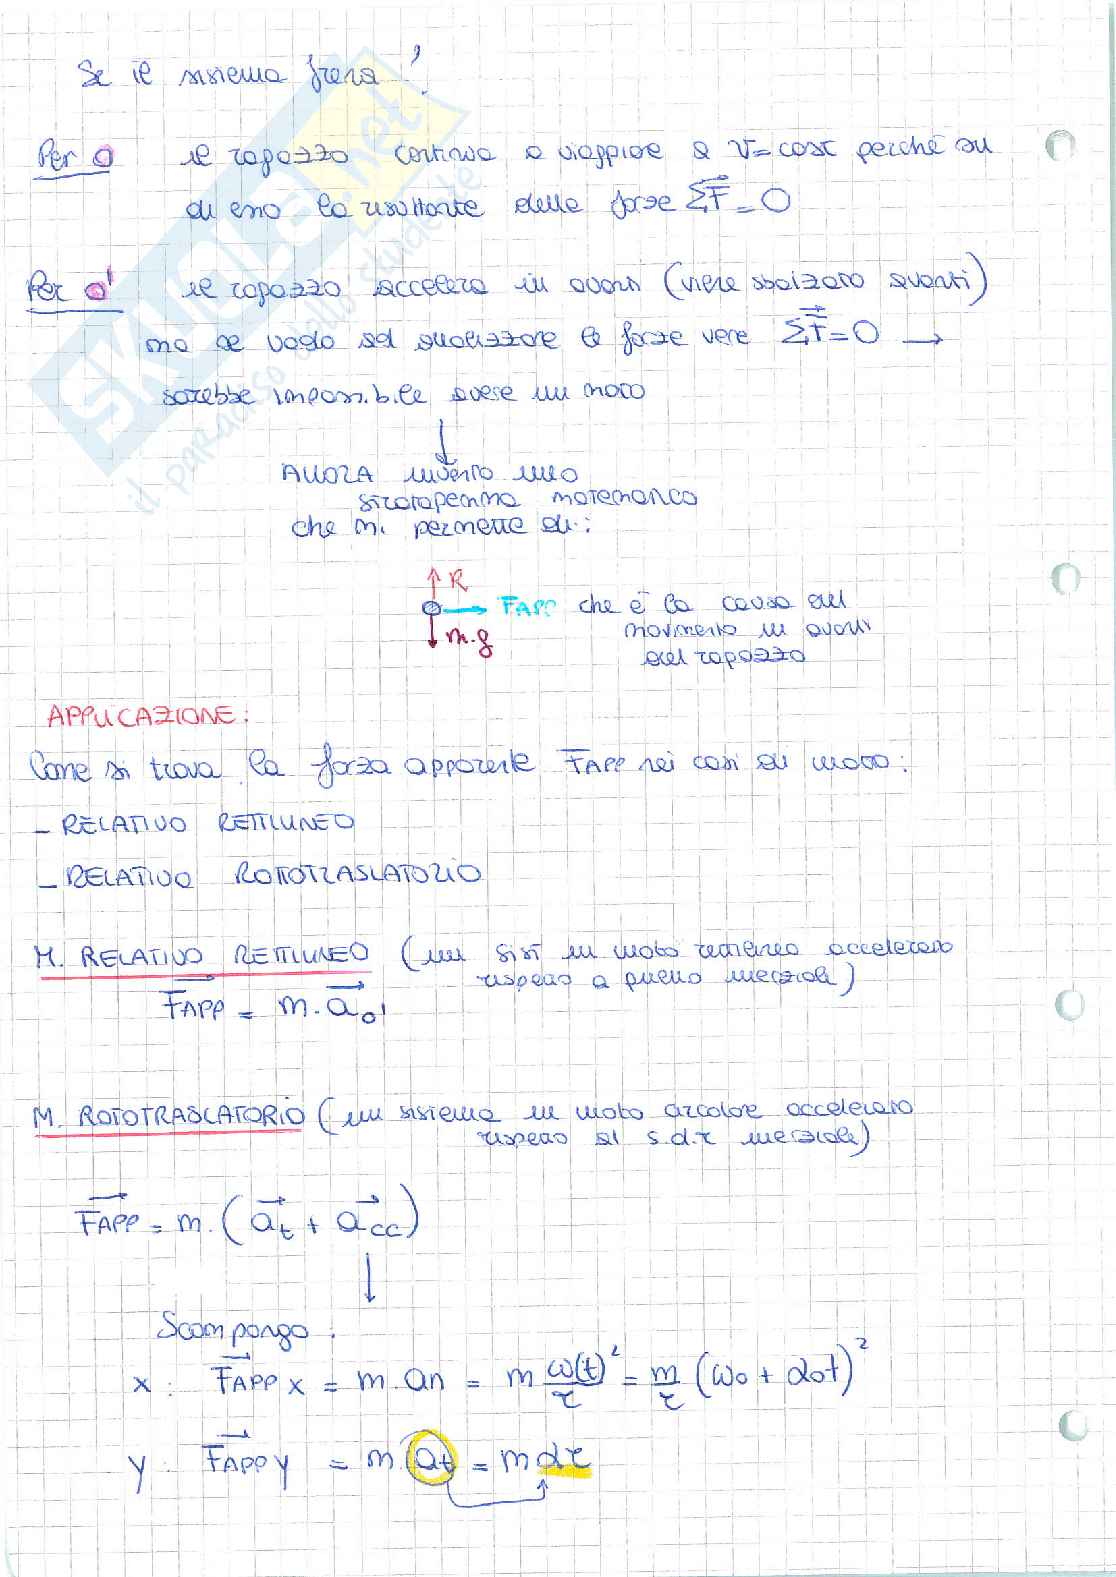 Se il sistema frena!
Per O il ragazzo continua a viaggiare a V=cost perché su
di esso la risultante delle forze ΣF = 0
Per O' il ragazzo accelera in avanti (viene sbalzato avanti)
ma se vado ad analizzare le forze vere ΣF = 0 →
sarebbe impossibile avere un moto
↓
ALLORA invento uno
stratagemma matematico
che mi permette di:
R
FAPP che è la causa del
m·g movimento in avanti
del ragazzo
APPLICAZIONE:
Come si trova la forza apparente FAPP nei casi di moto:
- RELATIVO RETTILINEO
- RELATIVO ROTOTRASLATORIO
M. RELATIVO RETTILINEO (un sist in moto rettilineo accelerato
rispetto a quello inerziale)
FAPP = m · a₀'
M. ROTOTRASLATORIO (un sistema in moto circolare accelerato
rispetto al s.d.r inerziale)
FAPP = m · (at + acc)
↓
Scompongo:
x: FAPP x = m · an = m ω(t)²/r = m/r (ω₀ + α₀t)²
y: FAPP y = m at = m α r
SKUOLA.net
il paradiso dello studente